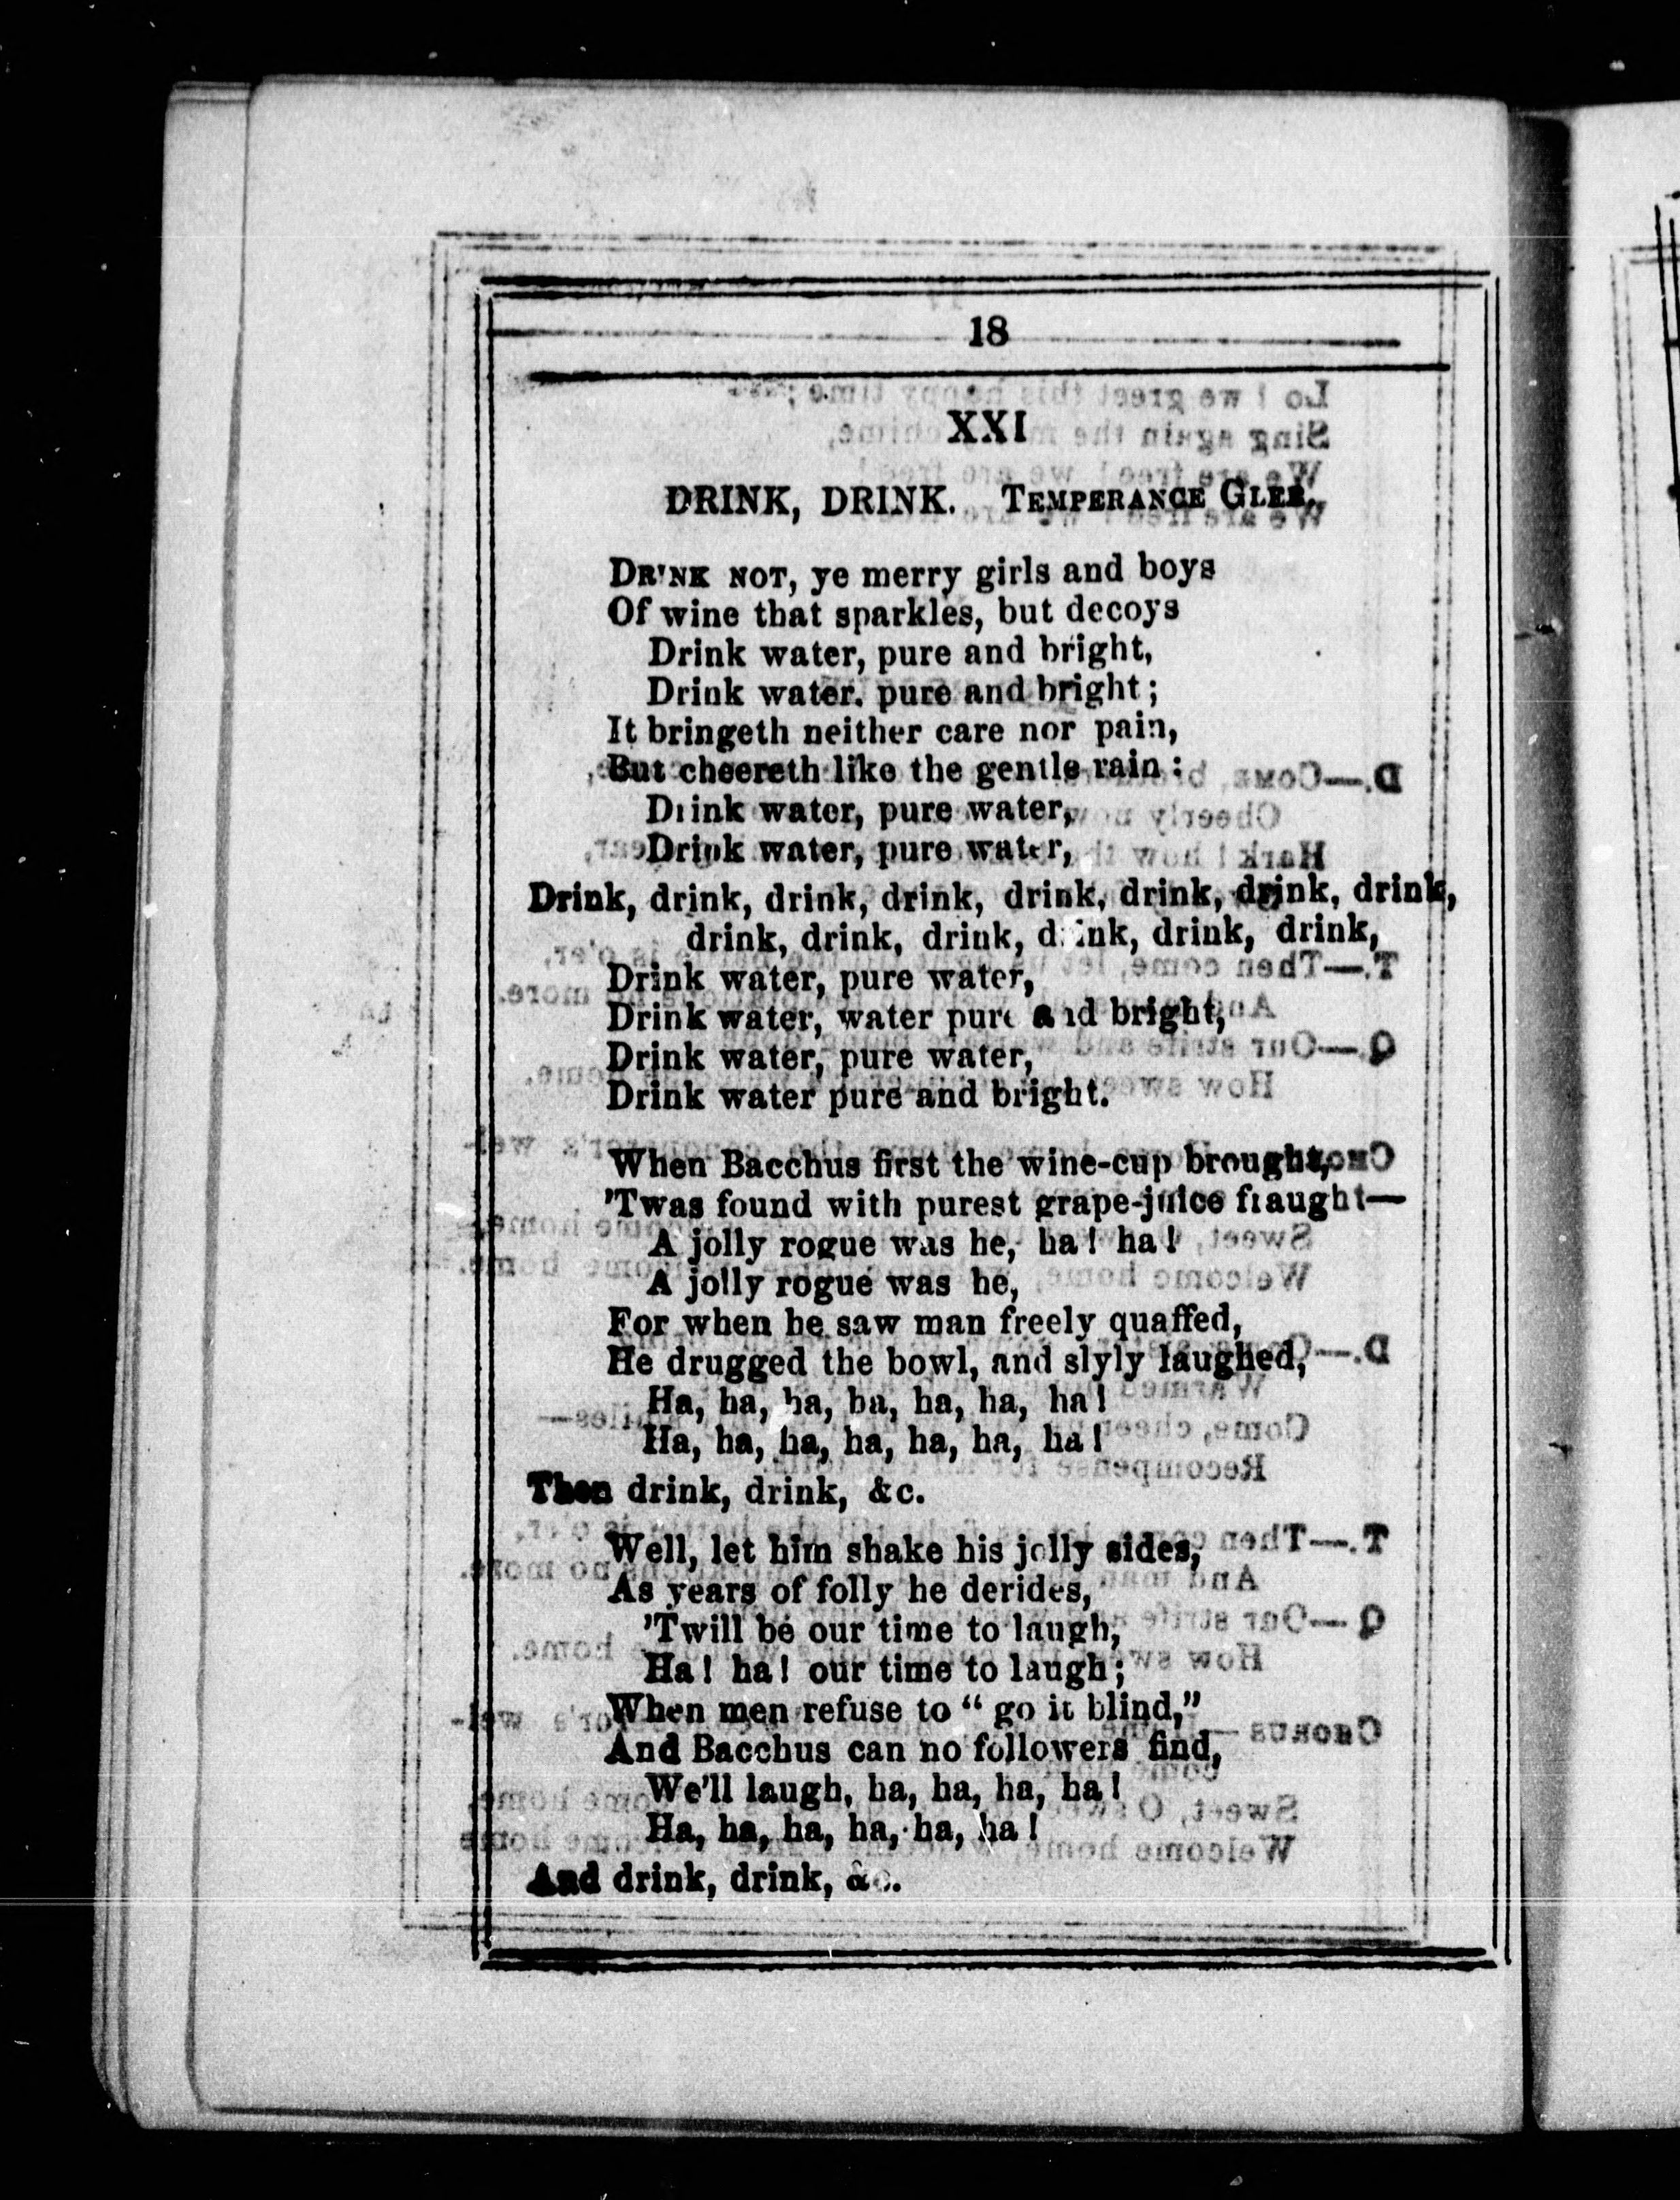 18
XXI
DRINK, DRINK. TEMPERANCE GLEE.
DRINK NOT, ye merry girls and boys
Of wine that sparkles, but decoys
Drink water, pure and bright,
Drink water. pure and bright;
It bringeth neither care nor pain,
But cheereth like the gentle rain:
Drink water, pure water,
Drink water, pure water,
Drink, drink, drink, drink, drink, drink, drink, drink,
drink, drink, drink, drink, drink, drink,
Drink water, pure water,
Drink water, water pure and bright,
Drink water, pure water,
Drink water pure and bright.
When Bacchus first the wine-cup brought,
'Twas found with purest grape-juice fraught—
A jolly rogue was he, ha! ha!
A jolly rogue was he,
For when he saw man freely quaffed,
He drugged the bowl, and slyly laughed,
Ha, ha, ha, ha, ha, ha, ha!
Ha, ha, ha, ha, ha, ha, ha!
Then drink, drink, &c.
Well, let him shake his jolly sides,
As years of folly he derides,
'Twill be our time to laugh,
Ha! ha! our time to laugh;
When men refuse to "go it blind,"
And Bacchus can no followers find,
We'll laugh, ha, ha, ha, ha!
Ha, ha, ha, ha, ha, ha!
And drink, drink, &c.